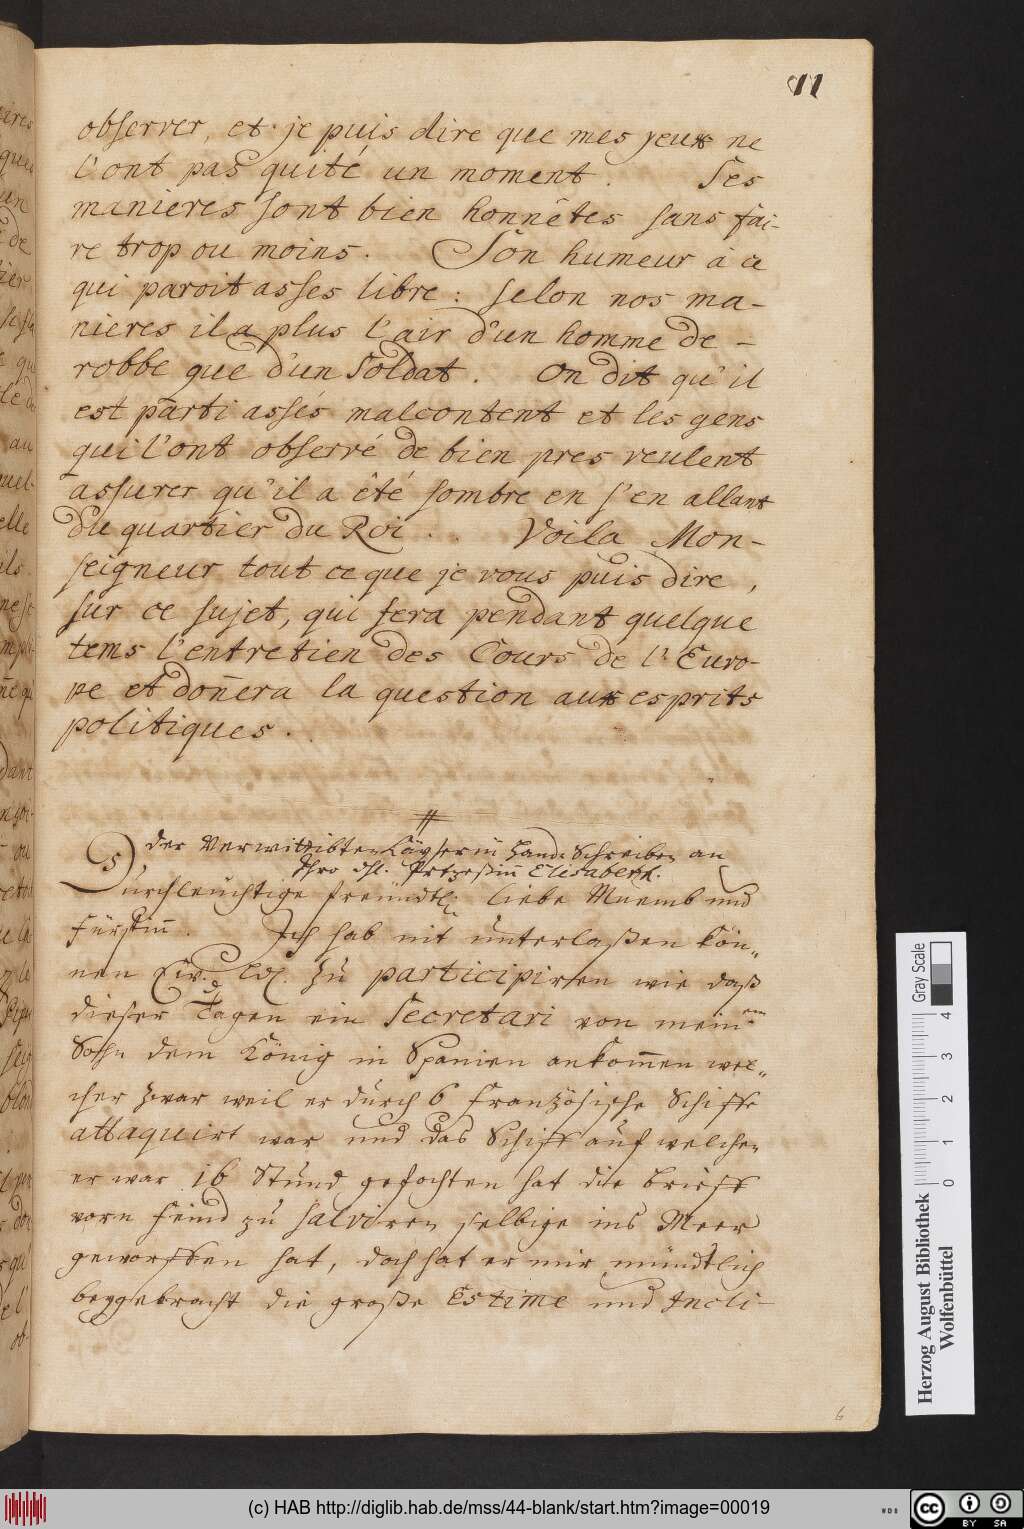 11
observer, et je puis dire que mes yeux ne
l'ont pas quité un moment. Ses
manieres sont bien honnêtes sans fai-
re trop ou moins. Son humeur à ce
qui paroit asses libre: selon nos ma-
nieres il a plus l'air d'un homme de -
robbe que d'un Soldat. On dit qu'il
est parti assés malcontent et les gens
qui l'ont observé de bien pres veulent
assurer qu'il a êté sombre en s'en allant
du quartier du Roi.. Voila Mon-
seigneur tout ce que je vous puis dire,
sur ce sujet, qui sera pendant quelque
tems l'entretien des Cours de l'Euro-
pe et don̄era la question aux esprits
politiques.
der Verwittibten Käyserin Hand Schreiben an
Ihro Dhl. Prtzessin Elisabeth.
Durchleuchtige freündtl: liebe Muemb und
Fürstin. Ich hab nit unterlaßen kön„
nen Ew. Ld. zu participiren wie daß
dieser Tagen ein Secretari von meinem
Sohn dem König in Spanien ankom̄en wel„
cher zwar weil er durch 6 Französische Schiffe
attaquirt war und das Schiff auf welchen
er war 16 Stund gefochten hat die Brieff
vorn Feind zu salviren selbige ins Meer
geworffen hat, doch hat er mir mündtlich
beygebracht die große Estime und Incli-
6
Herzog August Bibliothek
Wolfenbüttel
Gray Scale
0 1 2 3 4
(c) HAB http://diglib.hab.de/mss/44-blank/start.htm?image=00019
WDB
cc BY SA